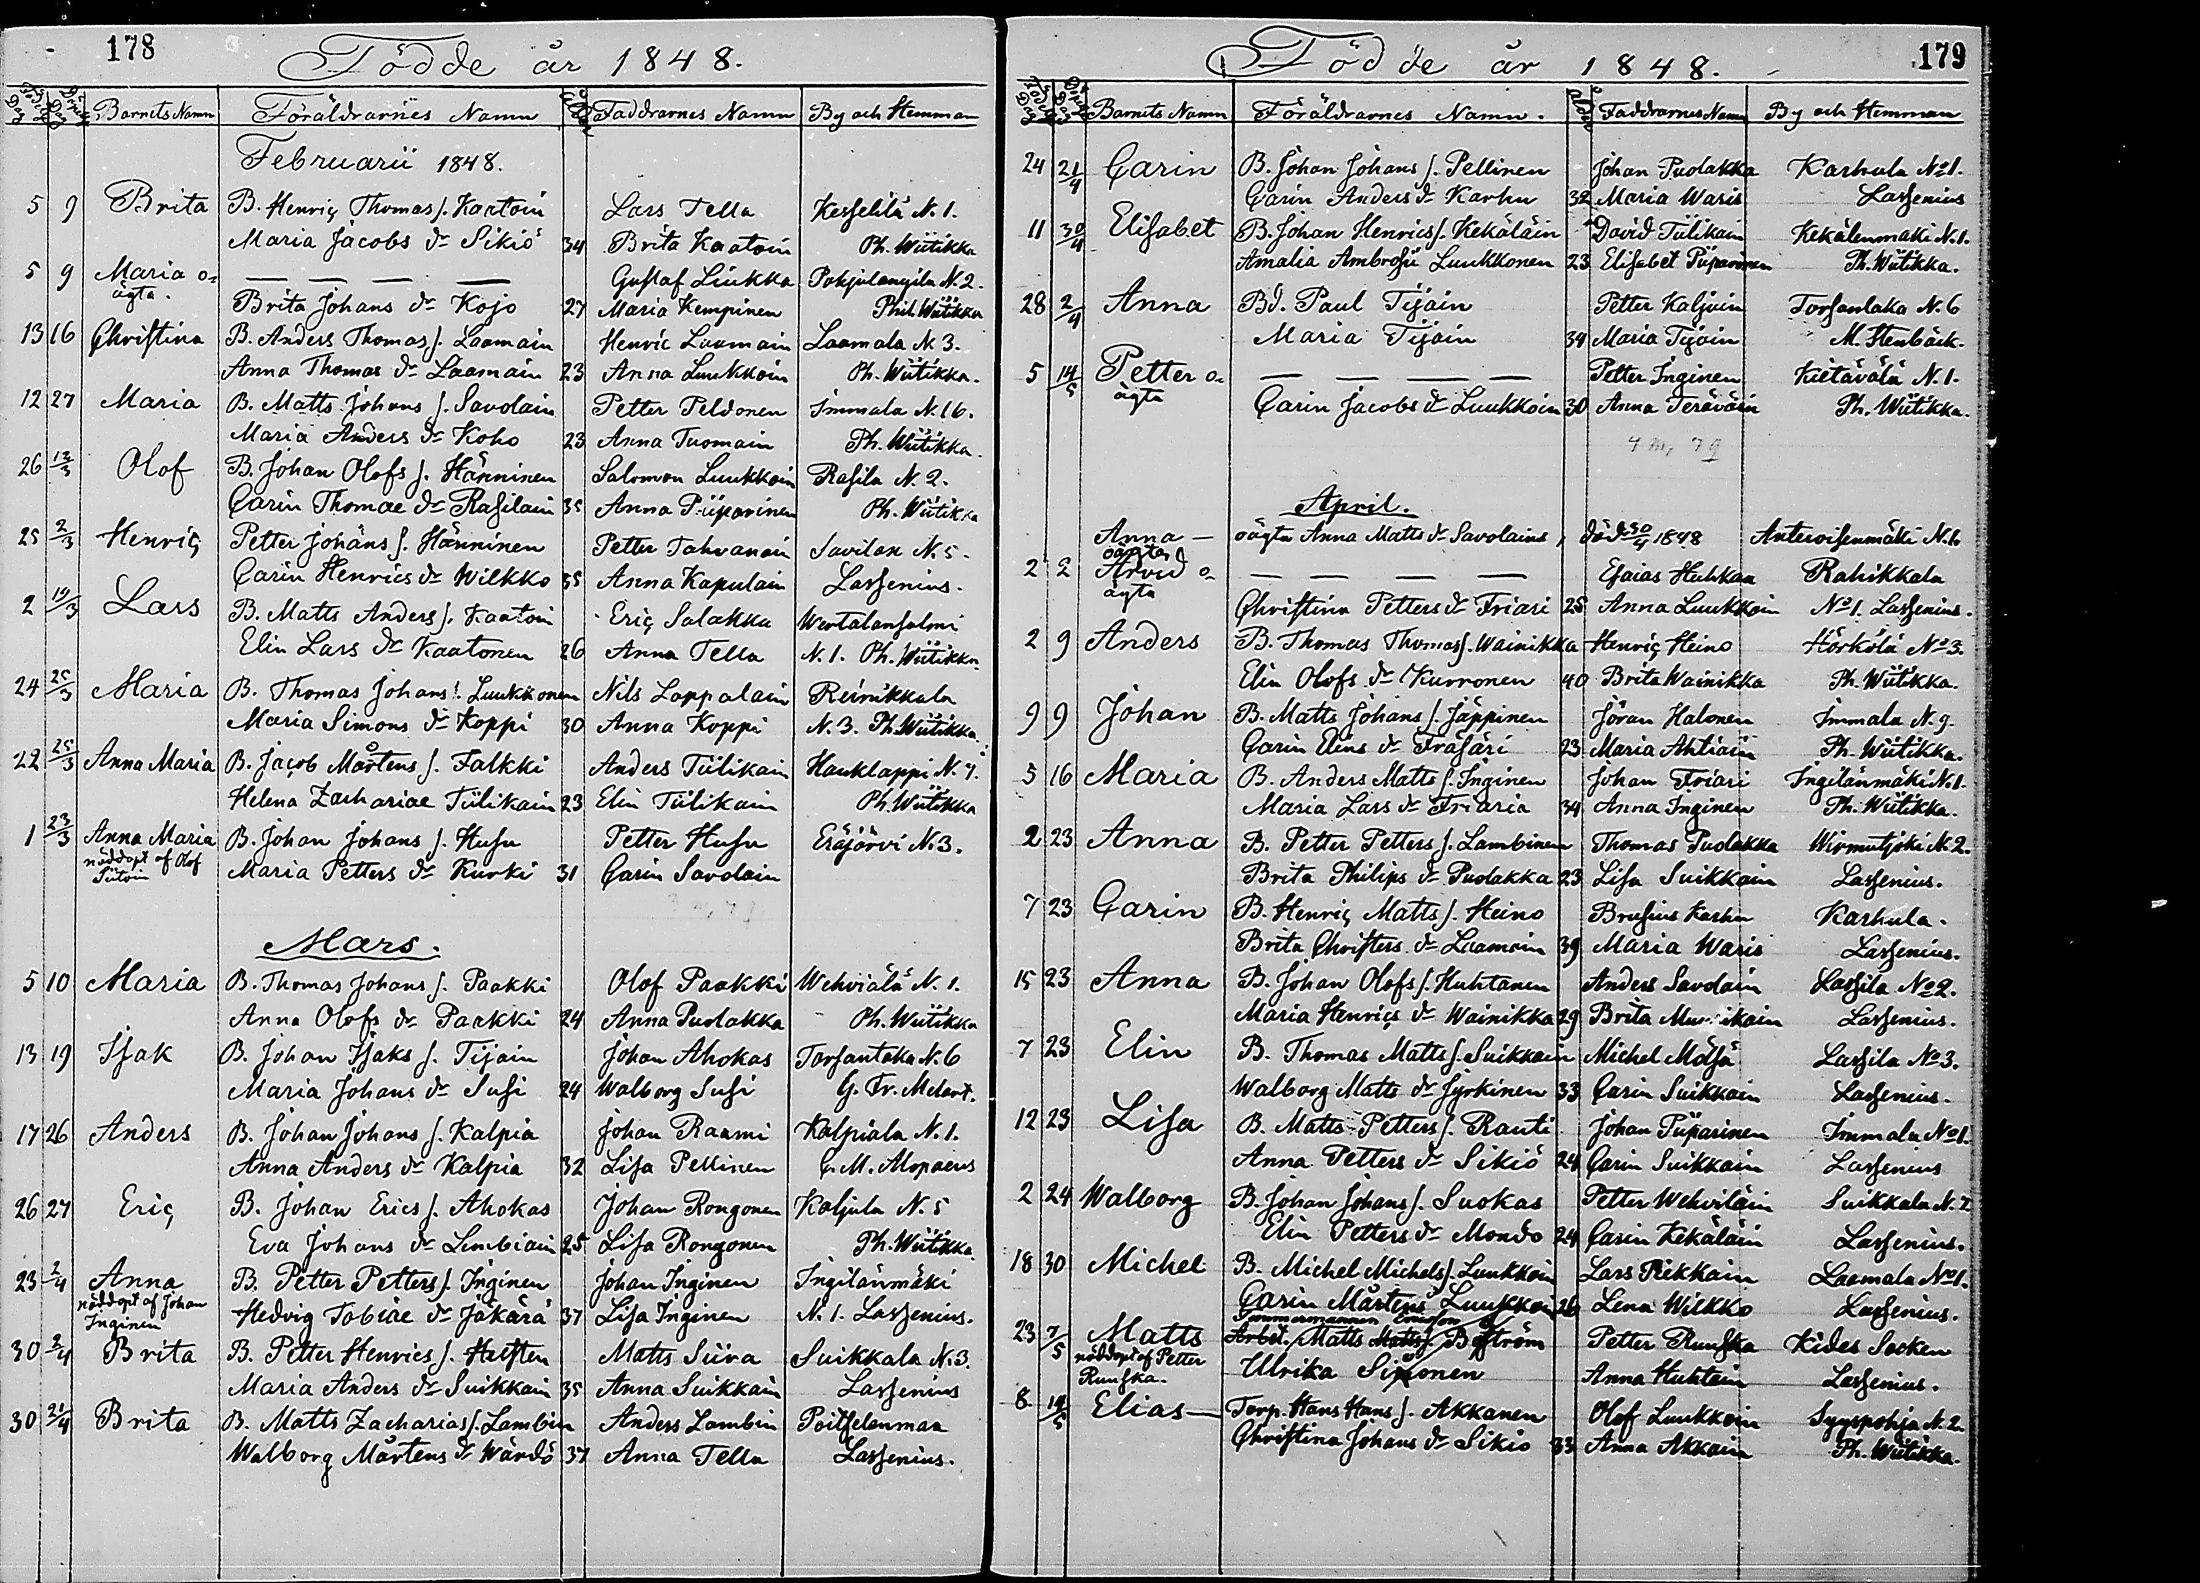 178
Födde år 1848.
Födelse Dag Döpelse Dag Barnets Namn Föräldrarnes Namn Ålder Faddrarnes Namn By och Hemman
Februarii 1848.
5 9 Brita B. Henriç Thomas s. Kaatoin Lars Tella Kesselilä N. 1.
Maria Jacobs dr Sikiö 34 Brita Kaatoin Ph. Wiitikka
5 9 Maria o= — — — — Gustaf Liukka Pohjulangila N. 2.
ägta. Brita Johans dr Kojo 27 Maria Kempinen Phil. Wiitikka
13 16 Christina B. Anders Thomas s. Laamain Henric Laamain Laamala N. 3.
Anna Thomas dr Laamain 23 Anna Luukkoin Ph. Wiitikka.
12 27 Maria B. Matts Johans s. Savolain Petter Peldonen Immala N. 16.
Maria Anders dr Koho 23 Anna Tuomain Ph. Wiitikka.
26 12/3 Olof B. Johan Olofs s. Hänninen Salomon Luukkoin Rasila N. 2.
Carin Thomae dr Rasilain 35 Anna Piiparinen Ph. Wiitikka
25 2/3 Henriç Petter Johans s. Hänninen Petter Tahvanain Savilax N. 5.
Carin Henrics dr Wilkko 35 Anna Kapulain Lassenius.
2 19/3 Lars B. Matts Anders s. Kaatoin Eriç Salakka Wertalansalmi
Elin Lars dr Kaatonen 26 Anna Tella N. 1. Ph. Wiitikka
24 25/3 Maria B. Thomas Johans s. Luukkonen Nils Lappalain Reinikkala
Maria Simons dr Koppi 30 Anna Koppi N. 3. Ph. Wiitikka.
22 25/3 Anna Maria B. Jaçob Mårtens s. Falkki Anders Tiilikain Hauklappi N. 7.
Helena Zachariae Tiilikain 23 Elin Tiilikain Ph. Wiitikka
1 23/3 Anna Maria B. Johan Johans s. Husu Petter Husu Eräjärvi N. 3.
nöddopt af Olof Siitoin Maria Petters dr Kurki 31 Carin Savolain
Mars.
5 10 Maria B. Thomas Johans s. Paakki Olof Paakki Wehviälä N. 1.
Anna Olofs dr Paakki 24 Anna Pudakka Ph. Wiitikka
13 19 Isak B. Johan Isaks s. Tijain Johan Ahokas Torsantaka N. 6
Maria Johans dr Susi 24 Walborg Susi G. Fr. Melart.
17 26 Anders B. Johan Johans s. Kalpia Johan Raami Kalpiala N. 1.
Anna Anders dr Kalpia 32 Lisa Pellinen C. M. Alopaeus
26 27 Eriç B. Johan Erics s. Ahokas Johan Rongonen Kaljula N. 5
Eva Johans dr Limbiain 25 Lisa Rongonen Ph. Wiitikka
23 2/4 Anna B. Petter Petters s. Inginen Johan Inginen Ingilänmäki
nöddopt af Johan Inginen Hedvig Tobiae dr Jäkärä 37 Lisa Inginen N. 1. Lassenius.
30 2/4 Brita B. Petter Henrics s. Halften Matts Siira Suikkala N. 3.
Maria Anders dr Suikkain 35 Anna Suikkain Lassenius
30 21/4 Brita B. Matts Zacharias s. Lambin Anders Lambin Poitselanmaa
Walborg Mårtens dr Wärdö 37 Anna Tella Lassenius.
179
Födde år 1848.
Födelse Dag Döpelse Dag Barnets Namn Föräldrarnes Namn. Ålder Faddrarnes Namn By och Hemman
24 21/4 Carin B. Johan Johans s. Pellinen Johan Pudakka Karhula No 1.
Carin Anders dr Karhu 32 Maria Waris Lassenius
11 30/4 Elisabet B. Johan Henrics s. Kekäläin David Tiilikain Kekälenmäki N. 1.
Amalia Ambrosii Luukkonen 23 Elisabet Piiparinen Ph. Wiitikka.
28 2/4 Anna Bd. Paul Tijain Petter Kaljuin Torsantaka N. 6
Maria Tijain 34 Maria Tijain M. Stenbäck.
5 14/5 Petter o= — — — — Petter Inginen Kietävälä N. 1.
ägta Carin Jacobs dr Luukkoin 30 Anna Teräväin Ph. Wiitikka.
April.
Anna — oägta oägta Anna Matts dr Savolains, död 30/4 1848 Anteroisenmäki N. 1.
2 2 Arvid o= — — — — Esaias Huhkaa Rahikkala
ägta Christina Petters dr Friari 25 Anna Luukkoin No 1. Lassenius.
2 9 Anders B. Thomas Thomas s. Wainikka Henriç Heino Hörkölä No 3.
Elin Olofs dr Kurronen 40 Brita Wainikka Ph. Wiitikka.
9 9 Johan B. Matts Johans s. Jäppinen Jöran Halonen Immala N. 9.
Carin Elins dr Frasari 23 Maria Ahtiain Ph. Wiitikka.
5 16 Maria B. Anders Matts s. Inginen Johan Friari Ingilänmäki N. 1.
Maria Lars dr Friaria 34 Anna Inginen Ph. Wiitikka.
2 23 Anna B. Petter Petters s. Lambinen Thomas Pudakka Wirmutjoki N. 2.
Brita Philips dr Pudakka 23 Lisa Suikkain Lassenius.
7 23 Carin B. Henriç Matts s. Heino Brusius Karhu Karhula.
Brita Christers dr Laamain 39 Maria Waris Lassenius.
15 23 Anna B. Johan Olofs s. Huhtanen Anders Savolain Lassila No 2.
Maria Henriçs dr Wainikka 29 Brita Lassenius.
7 23 Elin B. Thomas Matts s. Suikkain Michel Mölsä Lassila No 3.
Walborg Matts dr Jyrkinen 33 Carin Suikkain Lassenius.
12 23 Lisa B. Matts Petters s. Rauti Johan Piiparinen Immala No 1.
Anna Petters dr Sikiö 24 Carin Suikkain Lassenius
2 24 Walborg B. Johan Johans s. Suokas Petter Wehviläin Suikkala N. 7.
Elin Petters dr Mondo 24 Carin Kekäläin Lassenius.
18 30 Michel B. Michel Michels s. Luukkoin Lars Pekkain Laamala No 1.
Carin Mårtens Luukkoin 26 Lena Wilkko Lassenius.
Timmermannen
23 7/5 Matts Arbet. Matts Matts s. Boström Petter Ruuska Kides Socken
nöddopt af Petter Ruuska. Ulrika Simonen Anna Huhtain Lassenius.
8 14/5 Elias — Torp. Hans Hans s. Akkanen Olof Luukkoin Syyspohja N. 2.
Christina Johans dr Sikiö 33 Anna Akkain Ph. Wiitikka.